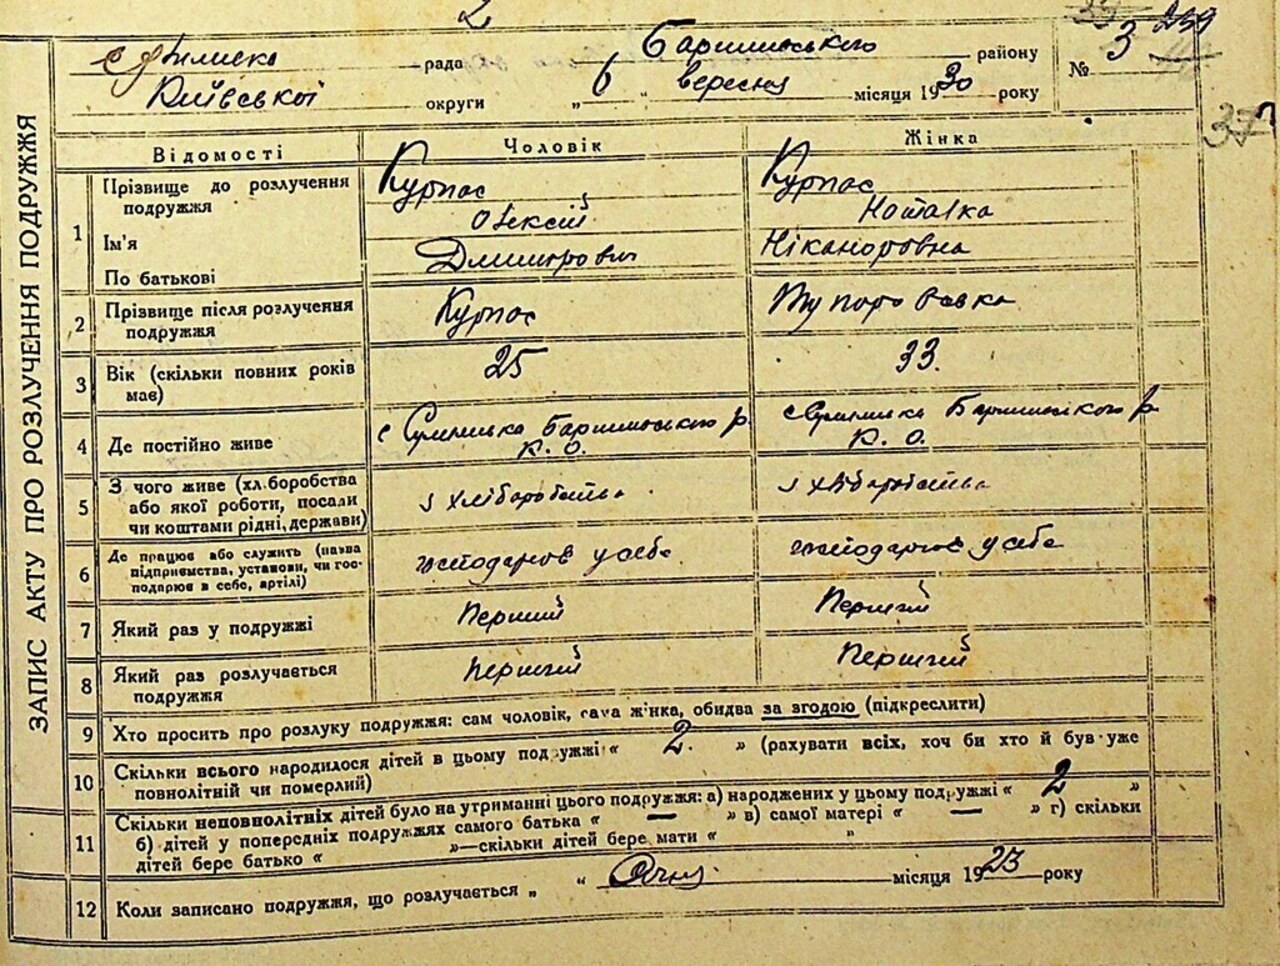 2
3 259
рада Баришівського району
Київської округи „ 6 “ вересня місяця 1930 року
№ 3
37
ЗАПИС АКТУ ПРО РОЗЛУЧЕННЯ ПОДРУЖЖЯ
Відомості Чоловік Жінка
1 Прізвище до розлучення подружжя Курпас Курпас
Ім'я Олексій Наталка
По батькові Дмитрович Ніканоровна
2 Прізвище після розлучення подружжя Курпас
3 Вік (скільки повних років має) 25 33.
4 Де постійно живе с Баришівського р. К. О. с Баришівського р. К. О.
5 З чого живе (хл.боробства або якої роботи, посади чи коштами рідні, держави) з хліборобства з хліборобства
6 Де працює або служить (назва підприємства, установи, чи господарює в себе, артілі) у себе у себе
7 Який раз у подружжі Перший Перший
8 Який раз розлучається подружжя Перший Перший
9 Хто просить про розлуку подружжя: сам чоловік, сама жінка, обидва за згодою (підкреслити)
10 Скільки всього народилося дітей в цьому подружжі „ 2. " (рахувати всіх, хоч би хто й був уже
повнолітній чи померлий)
11 Скільки неповнолітніх дітей було на утриманні цього подружжя: а) народжених у цьому подружжі „ 2 "
б) дітей у попередніх подружжях самого батька „ — " в) самої матері „ — " г) скільки
дітей бере батько „ "—скільки дітей бере мати „ "
12 Коли записано подружжя, що розлучається „ “ місяця 1923 року